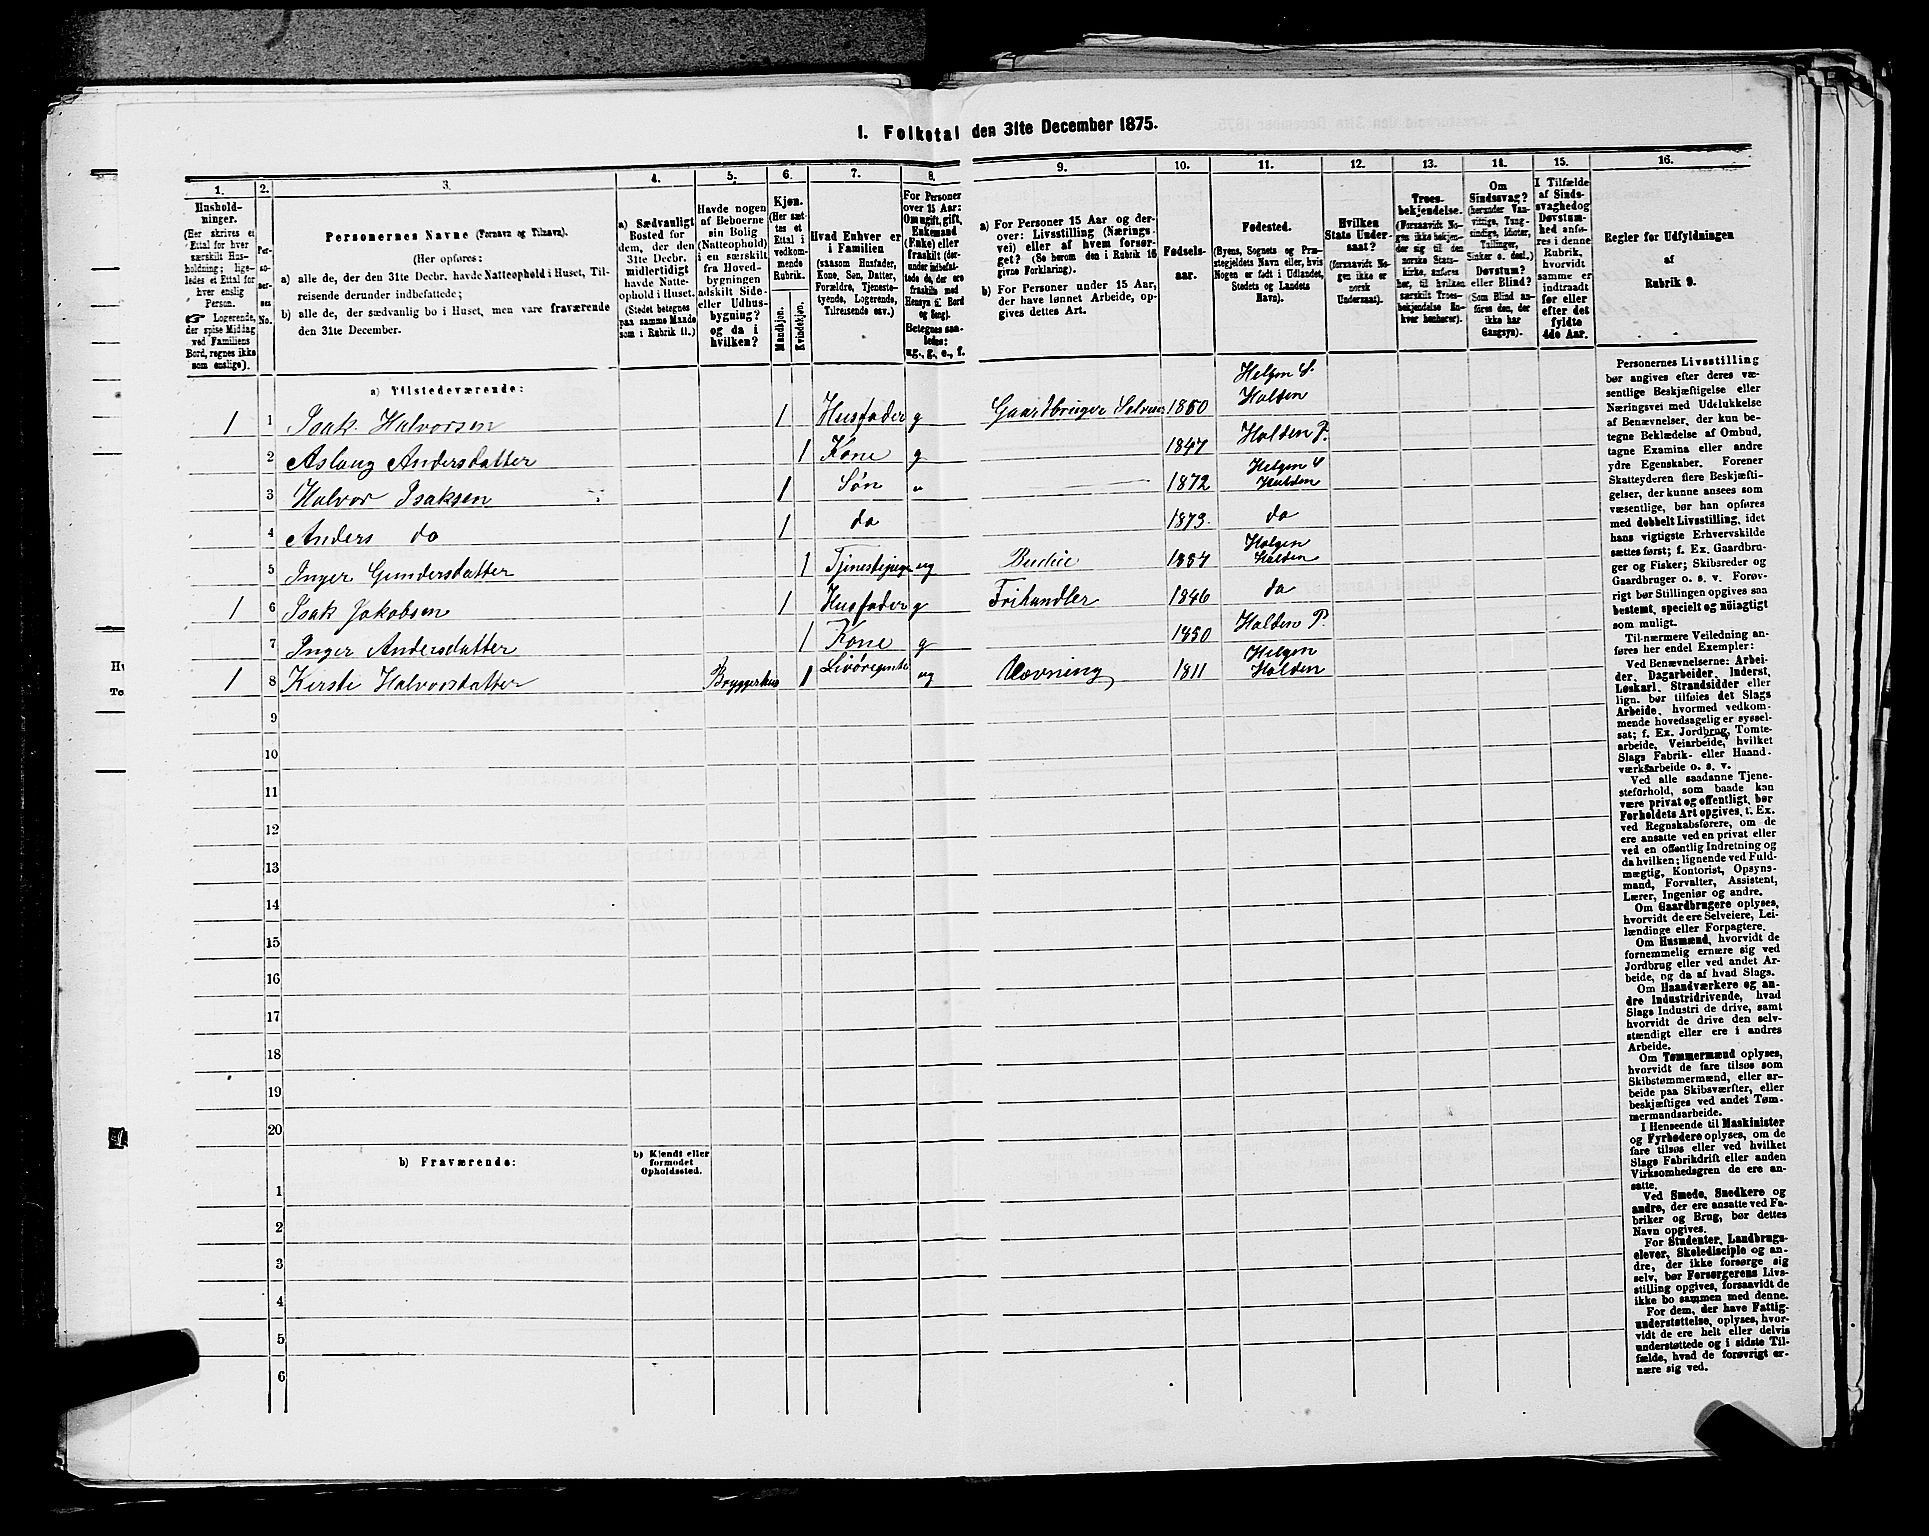 I. Folketal den 31te December 1875.
1.
2.
3.
4.
5.
6.
7.
8.
9.
10.
11.
12.
13.
14.
15.
16.
Hushold-
ninger.
(Her skrives et
Ettal for hver
særskilt Hus-
holdning; lige-
ledes et Ettal for
hver enslig
Person.
☞ Logerende,
der spise Middag
ved Familiens
Bord, regnes ikke
som enslige).
Per-
so-
ner-
nes
No.
Personernes Navne (Fornavn og Tilnavn).
(Her opføres:
a) alle de, der den 31te Decbr. havde Natteophold i Huset, Til-
reisende derunder indbefattede;
b) alle de, der sædvanlig bo i Huset, men vare fraværende
den 31te December.
a) Sædvanligt
Bosted for
dem, der den
31te Decbr.
midlertidigt
havde Natte-
ophold i Huset.
(Stedet betegnes
paa samme Maade
som i Rubrik 11.)
Havde nogen
af Beboerne
sin Bolig
(Natteophold)
i en særskilt
fra Hoved-
bygningen
adskilt Side-
eller Udhus-
bygning?
og da i
hvilken?
Kjøn.
(Her sæt-
tes et
Ettal i
vedkom-
mende
Rubrik.
Mandkjøn.
Kvindekjøn.
Hvad Enhver er
i Familien
(saasom Husfader,
Kone, Søn, Datter,
Forældre, Tjeneste-
tyende, Logerende,
Tilreisende osv.)
For Personer
over 15 Aar:
Om ugift, gift,
Enkemand
(Enke) eller
fraskilt (der-
under indbefat-
tede de, der ere
fraskilte med
Hensyn til Bord
og Seng).
Betegnes saa-
ledes:
ug., g., e., f.
a) For Personer 15 Aar og der-
over: Livsstilling (Nærings-
vei) eller af hvem forsør-
get? (Se herom den i Rubrik 16
givne Forklaring).
b) For Personer under 15 Aar,
der have lønnet Arbeide, op-
gives dettes Art.
Fødsels-
aar.
Fødested.
(Byens, Sognets og Præ-
stegjeldets Navn eller, hvis
Nogen er født i Udlandet,
Stedets og Landets
Navn).
Hvilken
Stats Under-
saat?
(forsaavidt No-
gen ikke er
norsk
Undersaat).
Troes-
bekjendelse.
(Forsaavidt No-
gen ikke bekjen-
der sig til den
norske Stats-
kirke, anføres
her, til hvilken
særskilt Troes-
bekjendelse En-
hver henhører).
Om
Sindssvag?
(herunder Van-
vittige, Tung-
sindige, Idioter,
Tullinger,
Sinker o. desl.).
Døvstum?
eller Blind?
(Som Blind an-
føres den, der
ikke har
Gangsyn).
I Tilfælde
af Sinds-
svaghed og
Døvstum-
hed anfø-
res i denne
Rubrik,
hvorvidt
samme er
indtraadt
før eller
efter det
fyldte
4de Aar.
Regler for Udfyldningen
af
Rubrik 9.
a) Tilstedeværende:
1 1 Isak Halvorsen 1 Husfader g Gaardbruger Selveier 1850 Helgen S. Holden
2 Aslaug Andersdatter 1 Kone g 1847 Holden P.
3 Halvor Isaksen 1 Søn „ 1872 Helgen S Holden
4 Anders do 1 do 1873 do
5 Inger Gundersdatter 1 Tjenestepige ug Budeie 1857 Helgen Holden
1 6 Isak Jakobsen 1 Husfader g Frihandler 1846 do
7 Inger Andersdatter 1 Kone g 1850 Holden P.
1 8 Kerste Halvorsdatter Bryggerhus 1 ug Vævning 1811 Helgen Holden
9
10
11
12
13
14
15
16
17
18
19
20
b) Fraværende:
b) Kjendt eller
formodet
Opholdssted.
1
2
3
4
5
6
Personernes Livsstilling
bør angives efter deres væ-
sentlige Beskjæftigelse eller
Næringsvei med Udelukkelse
af Benævnelser, der kun be-
tegne Beklædelse af Ombud,
tagne Examina eller andre
ydre Egenskaber. Forener
Skatteyderen flere Beskjæfti-
gelser, der kunne ansees som
væsentlige, bør han opføres
med dobbelt Livsstilling, idet
hans vigtigste Erhvervskilde
sættes først; f. Ex. Gaardbru-
ger og Fisker; Skibsreder og
Gaardbruger o. s. v. Forøv-
rigt bør Stillingen opgives saa
bestemt, specielt og nöiagtigt
som muligt.
Til nærmere Veiledning an-
føres her endel Exempler:
Ved Benævnelserne: Arbei-
der, Dagarbeider, Inderst,
Løskarl, Strandsidder eller
lign. bør tilføies det Slags
Arbeide, hvormed vedkom-
mende hovedsagelig er syssel-
sat; f. Ex. Jordbrug, Tomte-
arbeide, Veiarbeide, hvilket
Slags Fabrik- eller Haand-
værksarbeide o. s. v.
Ved alle saadanne Tjene-
steforhold, som baade kan
være privat og offentligt, bør
Forholdets Art opgives, f. Ex.
ved Regnskabsførere, om de
ere ansatte ved en privat eller
ved en offentlig Indretning og
da hvilken; lignende ved Fuld-
mægtig, Kontorist, Opsyns-
mand, Forvalter, Assistent,
Lærer, Ingeniør og andre.
Om Gaardbrugere oplyses,
hvorvidt de ere Selveiere, Lei-
lændinge eller Forpagtere.
Om Husmænd, hvorvidt de
fornemmelig ernære sig ved
Jordbrug eller ved andet Ar-
beide, og da af hvad Slags.
Om Haandværkere og an-
dre Industridrivende, hvad
Slags Industri de drive, samt
hvorvidt de drive den selv-
stændigt eller ere i andres
Arbeide.
Om Tømmermænd oplyses,
hvorvidt de fare tilsøs som
Skibstømmermænd, eller ar-
beide paa Skibsværfter, eller
beskjæftiges ved andet Tøm-
mermandsarbeide.
I Henseende til Maskinister
og Fyrbødere oplyses, om de
fare tilsøs eller ved hvilket
Slags Fabrikdrift eller anden
Virksomhedsgren de ere an-
satte.
Ved Smede, Snedkere og
andre, der ere ansatte ved Fa-
briker og Brug, bør dettes
Navn opgives.
For Studenter, Landbrugs-
elever, Skoledisciple og an-
dre, der ikke forsørge sig
selv, bør Forsørgerens Livs-
stilling opgives, forsaavidt de
ikke bo sammen med denne.
For dem, der have Fattig-
understøttelse, oplyses, hvor-
vidt de ere helt eller delvis
understøttede og i sidste Til-
fælde, hvad de forøvrigt er-
nære sig ved.